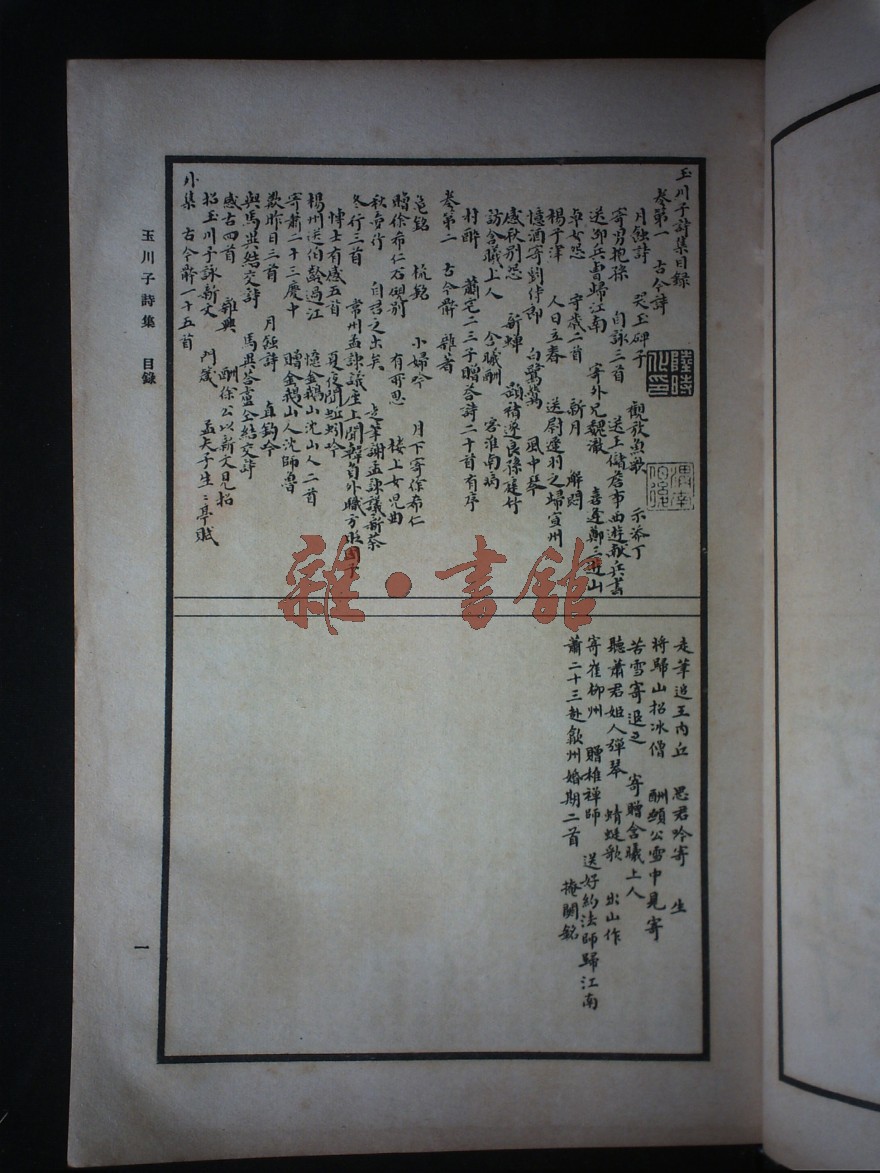 玉川子詩集目録
卷第一 古今詩
月蝕詩 哭玉碑子 觀放魚歌 示添丁
寄男抱孫 自詠三首 送王儲詹事西遊獻兵書
送邵兵曹歸江南 寄外兄魏澈 喜逢鄭三遊山
卓女怨 守歲二首 新月 解悶
楊子津 人日立春 送尉遲羽之歸宣州
憶酒寄劉侍郎 白鷺鷥 風中琴
感秋別怨 新蟬 顗禇遂良孫庭竹
訪含曦上人 含曦酬 客淮南病
村醉 蕭宅二三子贈荅詩二十首有序
卷第二 古今詩 雜著
龜銘 梳銘 小婦吟 月下寄徐希仁
贈徐希仁石硯別 有所思 樓上女兒曲
秋夢行 自君之出矣 走筆謝孟諫議新茶
冬行三首 常州孟諫議座上聞韓員外職方貶國子
博士有感五首 夏夜聞蚯蚓吟
楊州送伯齡過江 憶金鵝山沈山人二首
寄蕭二十三慶中 贈金鵝山人沈師魯
歎昨日三首 月蝕詩 直鈎吟
與馬異結交詩 馬異荅盧仝結交詩
感古四首 雜興 酬徐公以新文見招
招玉川子詠新文 門箴 孟夫子生〻亭賦
外集 古今詩一十五首
走筆追王内丘 思君吟寄 生
将歸山招冰僧 酬願公雪中見寄
苦雪寄退之 寄贈含曦上人
聽蕭君姬人彈琴 蜻蜓歌 出山作
寄崔柳州 贈稚禪師 送好約法師歸江南
蕭二十三赴歙州婚期二首 掩關銘
玉川子詩集 目錄
一
雜·書館